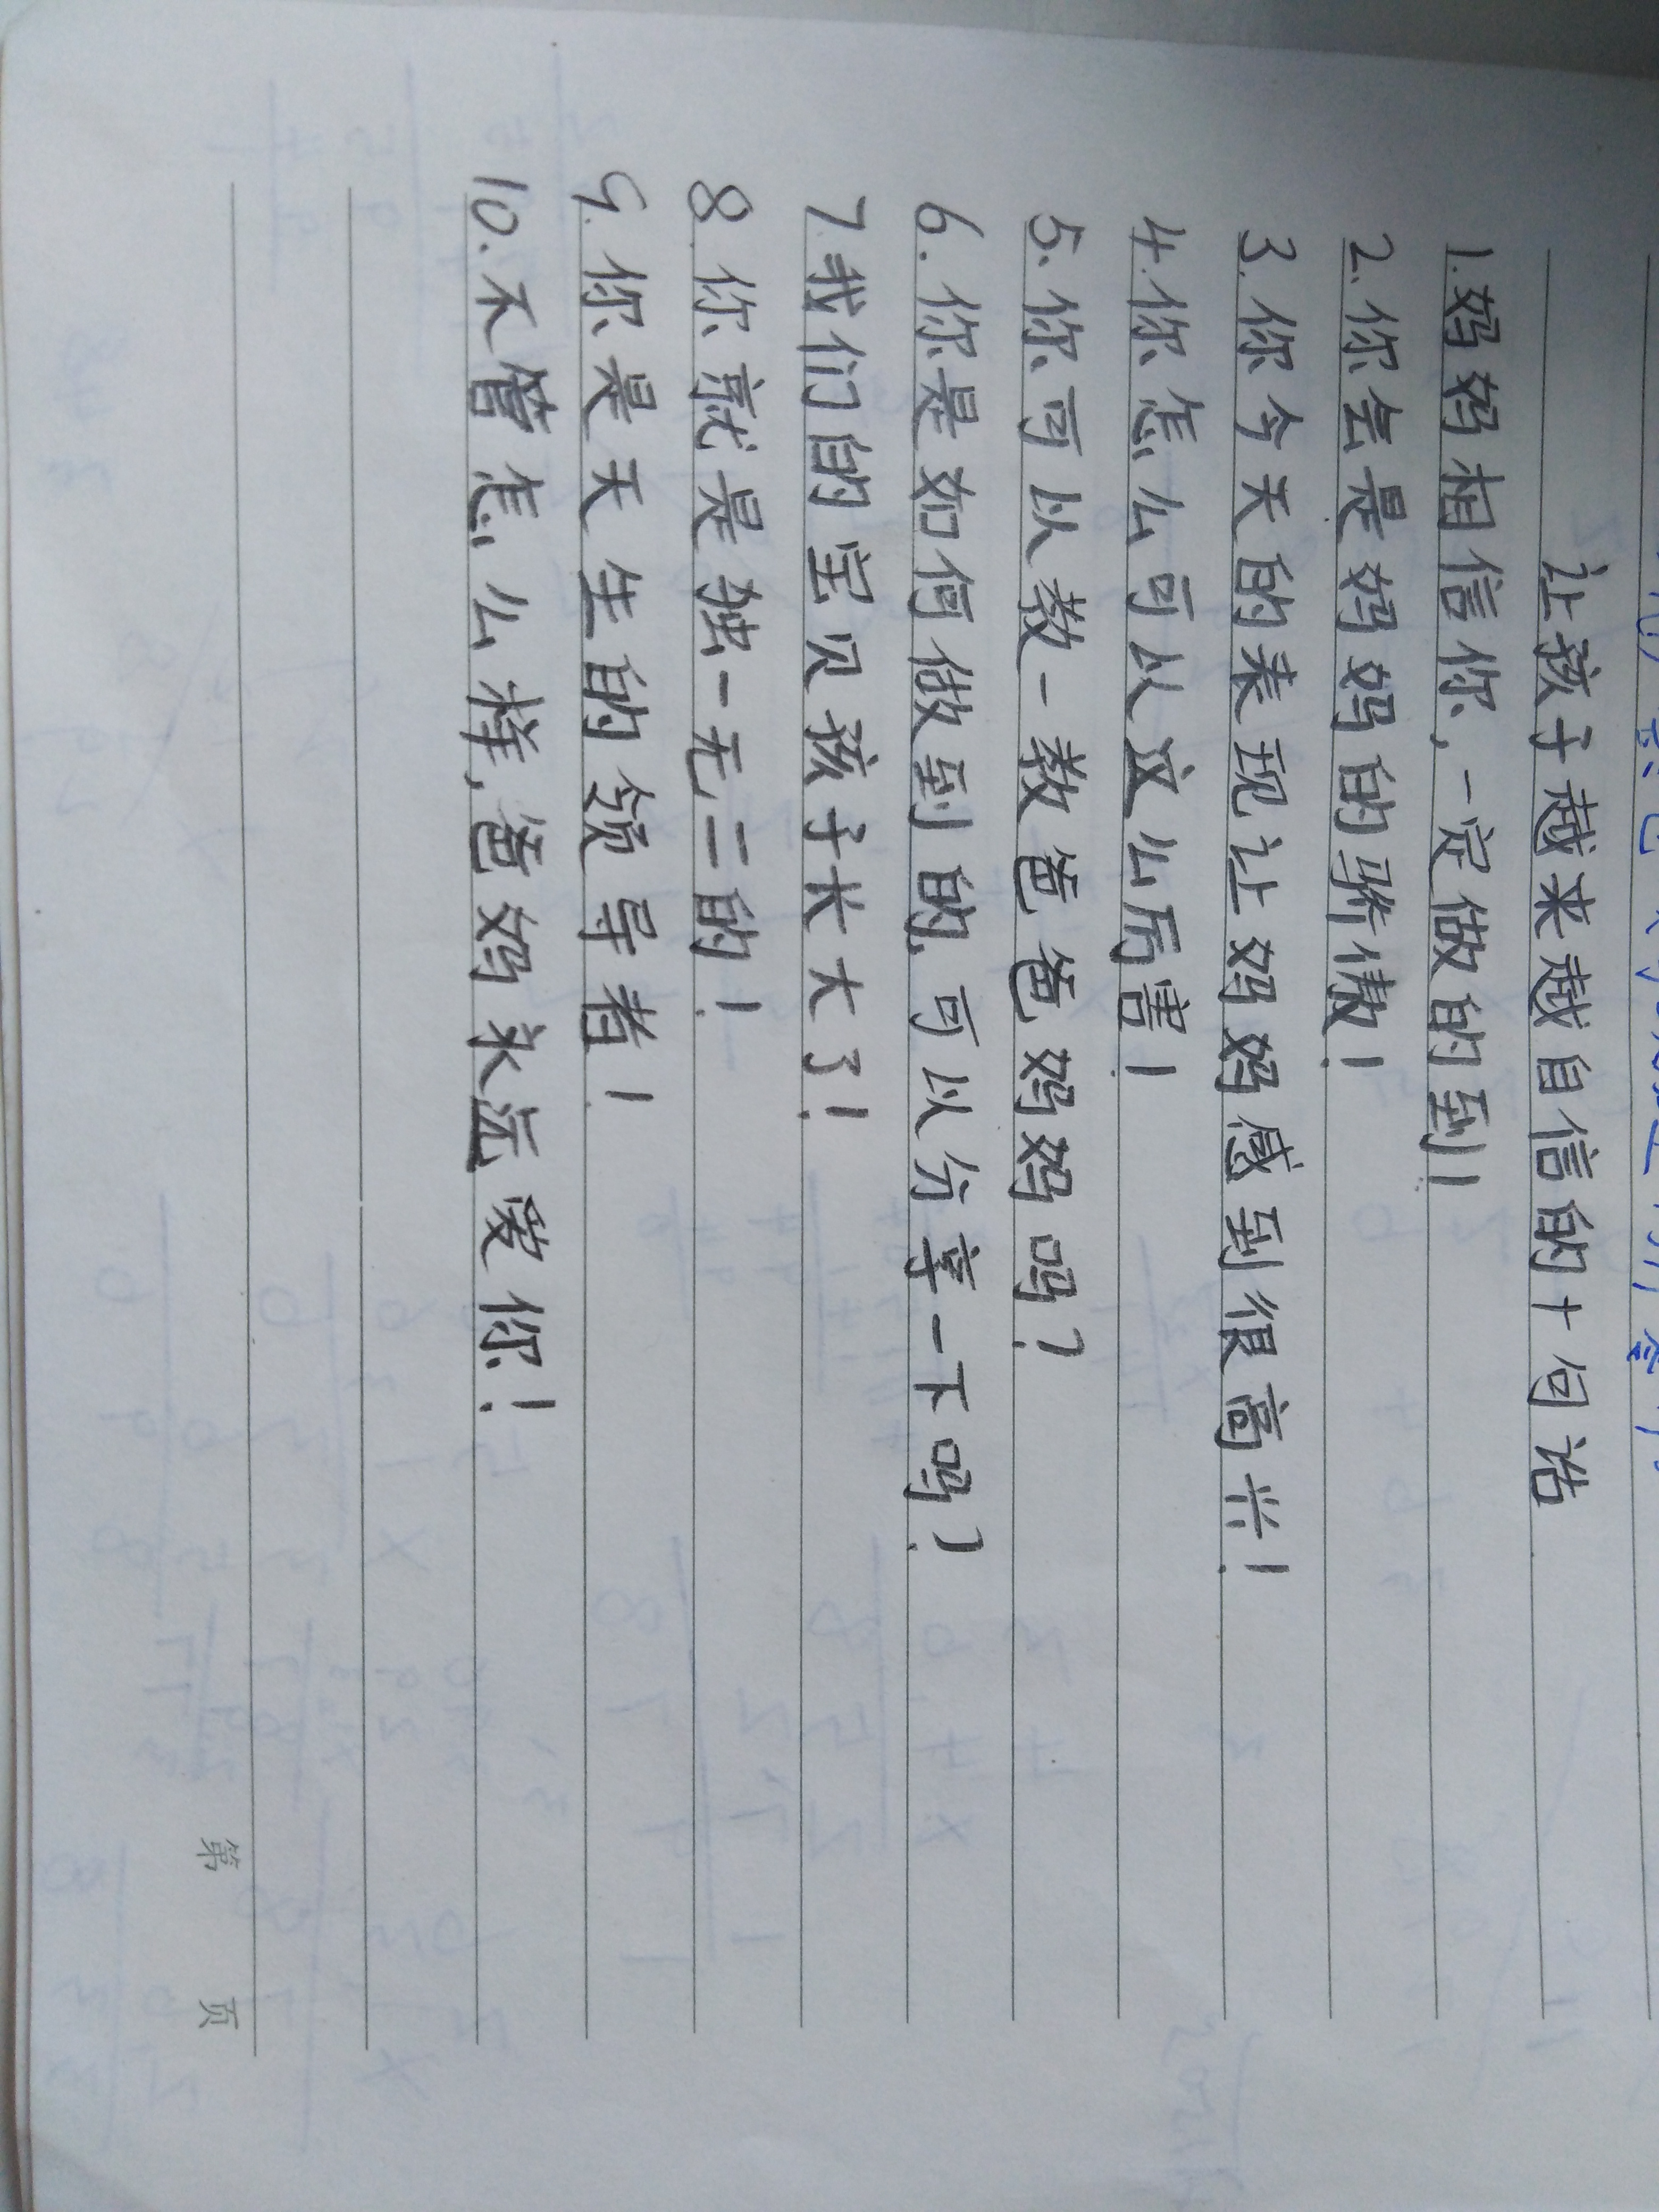 让孩子越来越自信的十句话
1.妈妈相信你,一定做的到!
2.你会是妈妈的骄傲!
3.你今天的表现让妈妈感到很高兴!
4.你怎么可以这么厉害!
5.你可以教一教爸爸妈妈吗?
6.你是如何做到的,可以分享一下吗?
7.我们的宝贝孩子长大了!
8.你就是独一无二的!
9.你是天生的领导者!
10.不管怎么样,爸妈永远爱你!
第 页